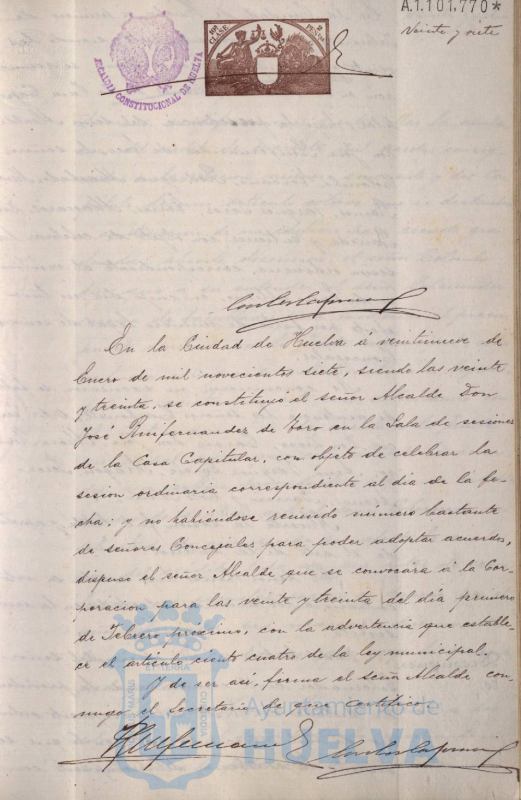 A.1.101.770*
Veinte y siete
ALCALDIA CONSTITUCIONAL DE HUELVA
10ª CLASE
2 PESETAS
En la Ciudad de Huelva á veintinueve de
Enero de mil novecientos siete, siendo las veinte
y treinta, se constituyó el señor Alcalde Don
José Ruifernandez de Toro en la Sala de sesiones
de la Casa Capitular, con objeto de celebrar la
sesion ordinaria correspondiente al dia de la fe-
cha; y no habiéndose reunido número bastante
de señores Concejales para poder adoptar acuerdos,
dispuso el señor Alcalde que se convocára á la Cor-
poracion para las veinte y treinta del dia primero
de Febrero proximo, con la advertencia que estable-
ce el artículo ciento cuatro de la ley municipal.
Y de ser así, firma el señor Alcalde con-
migo el Secretario de que certifico.
Ayuntamiento de
HUELVA